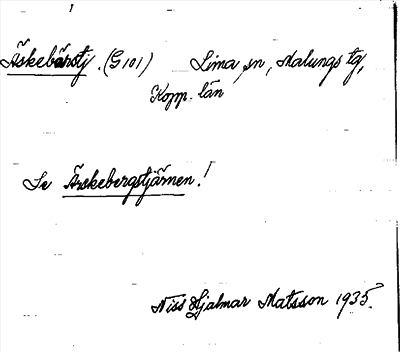 Äskebärstj. (G101) Lima sn, Malungs tg,
Kopp. län
Se Äskebergstjärnen!
Niss Hjalmar Matsson 1935.